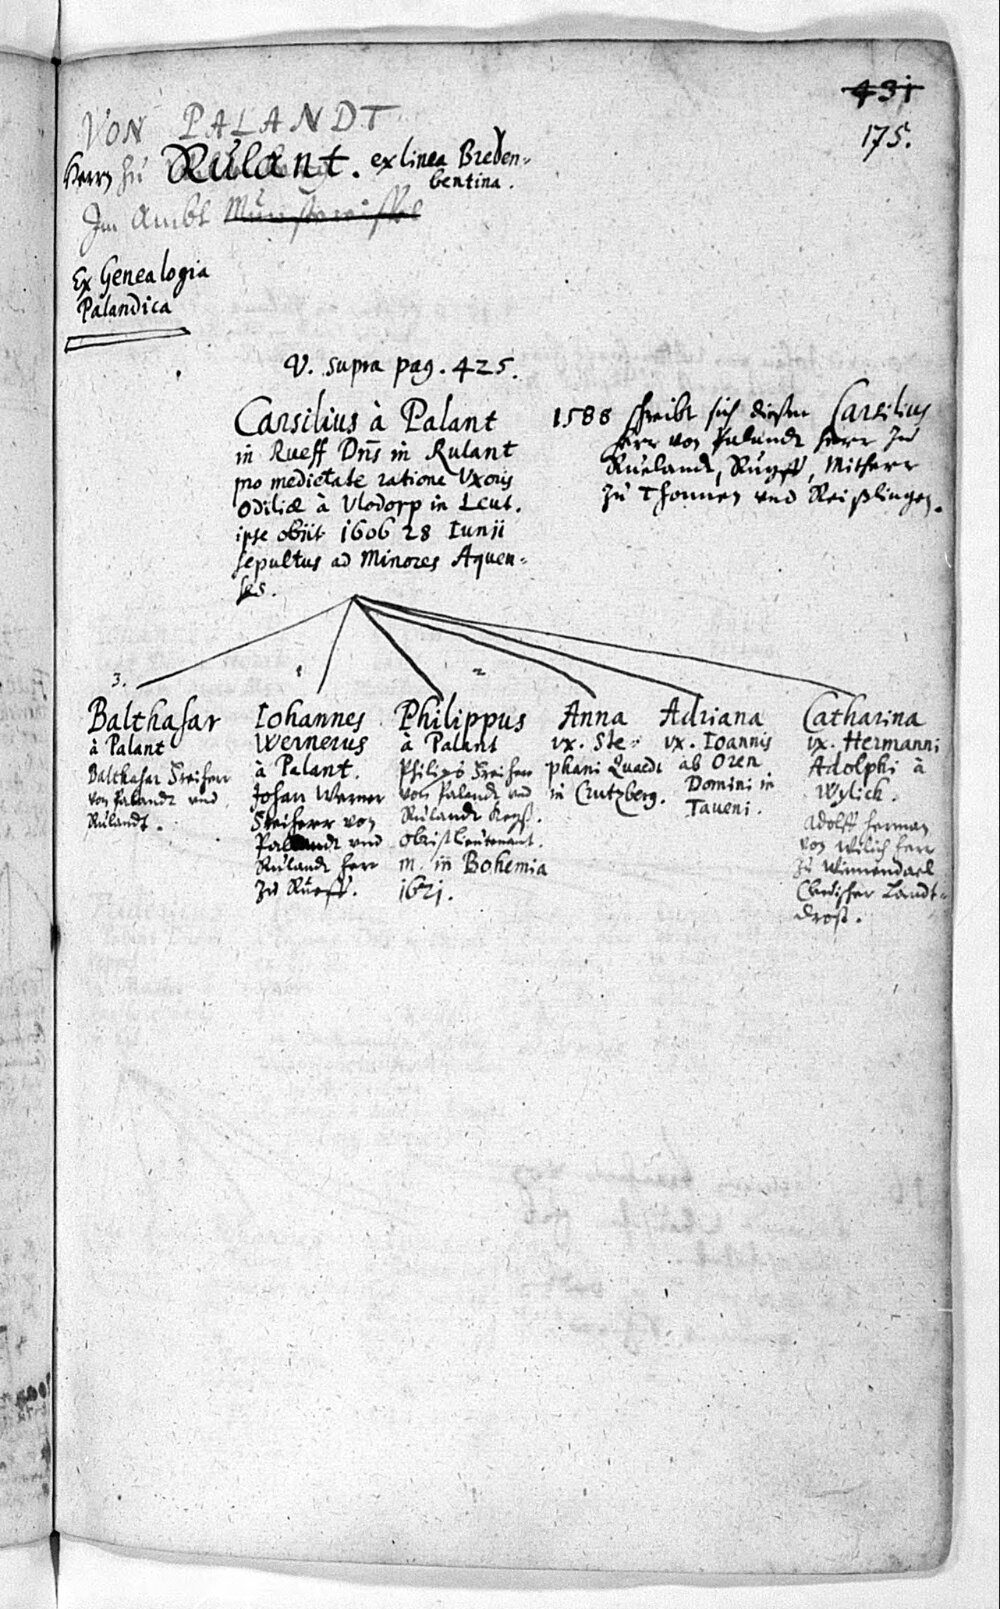 431
175.
VON PALANDT
Herrn zu Rulant. ex linea Breden-
bentina.
Im Ambt
Ex Genealogia
Palandica
V. supra pag. 425.
Carsilius à Palant
in Rueff Dns in Rulant
pro medietate ratione Uxoris
Odiliæ à Vlodorp in Leut.
ipse obiit 1606 28 Iunii
sepultus ad Minores Aquen-
ses.
1588 schreibt sich dieser Carsilius
herr von Palandt herr zu
Ruelandt, Mitherr
zu Thonnen vnd Reißlingen.
3.
1
2
Balthasar
à Palant
Balthasar Freiherr
von Palandt vnd
Rulandt.
Iohannes
Wernerus
à Palant.
Johan Werner
Freiherr von
Palandt vnd
Rulandt herr
zu Rueff.
Philippus
à Palant
Philips Freiherr
von Palandt vnd
Rulandt Keyß.
Obristlieutenant.
m. in Bohemia
1621.
Anna
vx. Ste-
phani Quaedt
in Crutzberg.
Adriana
vx. Ioannis
ab Oren
Domini in
Taveni.
Catharina
vx. Hermanni
Adolphi à
Wylich.
Adolff herman
von Wilich herr
zu Winnendael
Clevischer Landt-
drost.